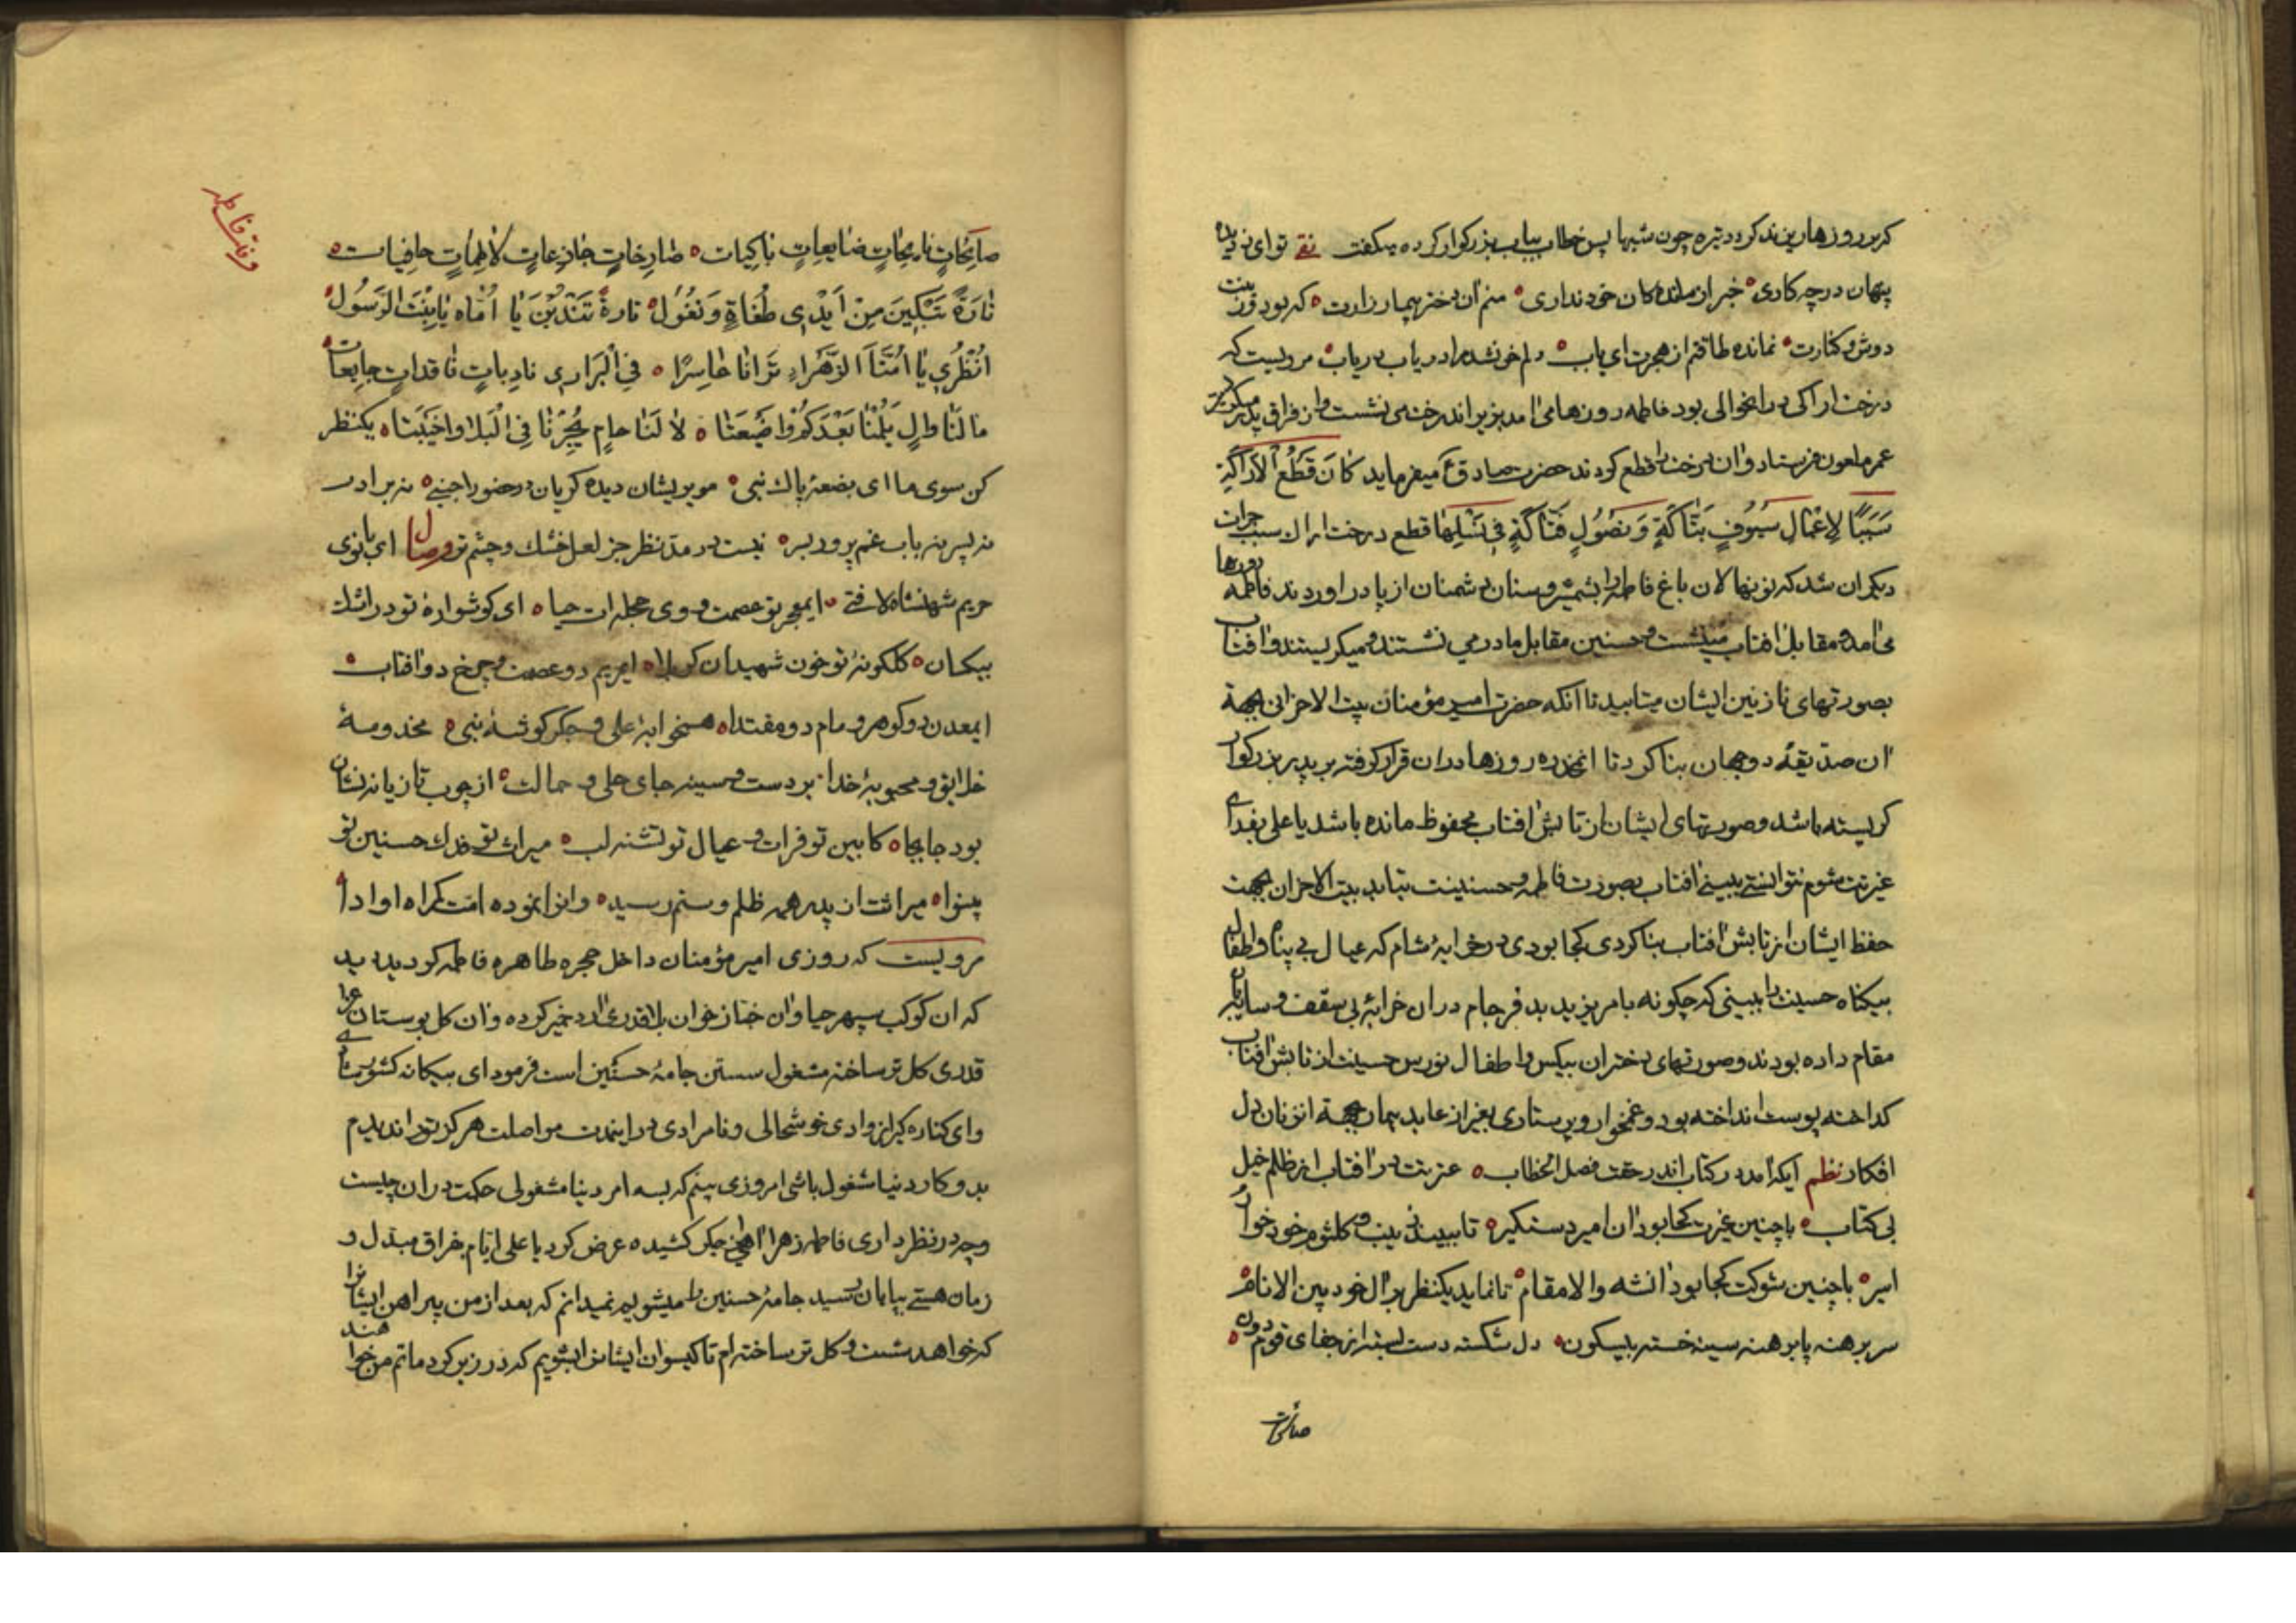 کر بر روزها ریزند کردد تیره چون شبها پس خطاب بباب بزرکوار کرده میکفت تو ای نور دیده
پنهان در چه کاری خبر از ماندهکان خود نداری منم ان دختر بیمار زارت که بود زینت
دوش و کنارت نمانده طاقتم از هجرت ای باب دلم خون شد مرا دریاب دریاب مرویست که
درخت اراکی در انحوالی بود فاطمه روزها می امد بزیر اندرخت می نشست و از فراق پدر میکریست
عمر ملعون فرستاد و ان درخت را قطع کردند حضرت صادق ع میفرماید کَانَ قَطْعُ الْاَرَاکَةِ
سَبَبًا لِاِعْمَالِ سُیُوفٍ بَتَّاکَةٍ وَ نُصُولٍ فَتَّاکَةٍ فِی نَسْلِهَا قطع درخت اراک سبب جرات
دیکران شد که نونهالان باغ فاطمه را بشمشیر و سنان دشمنان از پا در اوردند فاطمه روزها
می امد و مقابل افتاب مینشست و حسنین مقابل مادر می نشستند و میکریستند و افتاب
بصورتهای نازنین ایشان میتابید تا انکه حضرت امیر مؤمنان بیت الاحزانی بجهة
ان صدیقهٔ دوجهان بنا کرد تا انمخدره روزها در ان قرار کرفته بر پدر بزرکوار
کریسته باشد و صورتهای ایشان از تابش افتاب محفوظ مانده باشد یا علی بفدای
غیرتت شوم نتوانستی ببینی افتاب بصورت فاطمه و حسنینت بتابد بیت الاحزان بجهت
حفظ ایشان از تابش افتاب بنا کردی کجا بودی در خرابهٔ شام که عیال بی پناه و اطفال
بیکناه حسینت را ببینی که چکونه بامر یزید بد فرجام در ان خرابهٔ بی سقف و سایبان
مقام داده بودند و صورتهای دختران بیکس و اطفال نورس حسینت از تابش افتاب
کداخته پوست انداخته بود و غمخوار و پرستاری بغیر از عابد بیمار بجهة انزنان دل
افکار نظم ایکه امد در کتاب اندر حقت فصل الخطاب عترتت در افتاب از ظلم خیل
بی کتاب باچنین غیرت کجا بود ان امیر دستکیر تا ببیند زینب و کلثوم خود خوار
اسیر باچنین شوکت کجا بود انشه والا مقام تا نماید یکنظر بر ال خود بین الانام
سر برهنه پا برهنه سینه خسته بیسکون دل شکسته دست بسته از جفای قوم دون
صائحات
صَائِحَاتٍ نَائِحَاتٍ ضَایِعَاتٍ بَاکِیَات صَارِخَاتٍ جَازِعَاتٍ لَاطِمَاتٍ حَافِیَات
تَارَةً تَبْکِینَ مِنْ اَیْدِی طُغَاةٍ وَ نُغُول تَارةً تَنْدُبْنَ یَا اُمَّاه یَا بِنْتَ الرَسُول
اُنْظُرِی یَا اُمَّنَا الزَّهْرَاء تَرَانَا حَاسِرًا فِی الْبَرَارِی نَادِبَاتٍ فَاقِدَاتٍ جَایِعَات
مَا لَنَا وَالٍ یَلُمْنَا بَعْدَکُمْ وَا ضَیْعَتَا لَا لَنَا حَامٍ یُجِرْنَا فِی الْبَلَا وا خَیْبَتَا یکنظر
کن سوی ما ای بضعهٔ پاک نبی مو پریشان دیده کریان در حضور اجنبی نه برادر
نه پسر نه باب غم پرور بسر نیست در مدّ نظر جز لعل خشک و چشم تر وصال ای بانوی
حریم شهنشاه لافتی ایمعجر تو عصمت و وی حجله ات حیا ای کوشوارهٔ تو در اشک
بیکسان کلکونهٔ تو خون شهیدان کربلا ایمریم دو عصمت و چرخ دو افتاب
ایمعدن دو کوهر و مام دو مقتدا همخوابهٔ علی و جکر کوشهٔ نبی مخدومهٔ
خلایق و محبوبهٔ خدا بر دست و سینه جای حلی و حمالت از چوب تازیانه نشان
بود جابجا کابین تو فرات و عیال تو تشنه لب میراث تو فدک حسنین تو
بینوا میراثت از پدر همه ظلم و ستم رسید و انرا نموده امت کمراه او ادا
مرویست که روزی امیر مؤمنان داخل حجره طاهره فاطمه کردید دید
که ان کوکب سپهر حیا و ان خباز خوان بلا قدری ارد خمیر کرده و ان کل بوستان عزا
قدری کل تر ساخته مشغول شستن جامهٔ حسنین است فرمود ای
و ای کناره کیر از وادی خوشحالی و نامرادی در اینمدت مواصلت هرکز تو را ندیدم
بدو کار دنیا مشغول باشی امروز می بینم که بسه امر دنیا مشغولی حکمت در ان چیست
و چه در نظر داری فاطمه زهرا اهی از جکر کشیده عرض کرد یا علی ایام بفراق مبدل و
زمان هستی بپایان رسید جامهٔ حسنین را میشویم نمیدانم که بعد از من پیراهن ایشان را
که خواهد شست و کل تر ساخته ام تا کیسوان ایشانرا بشویم که در زیر کرد ماتم من خواهند